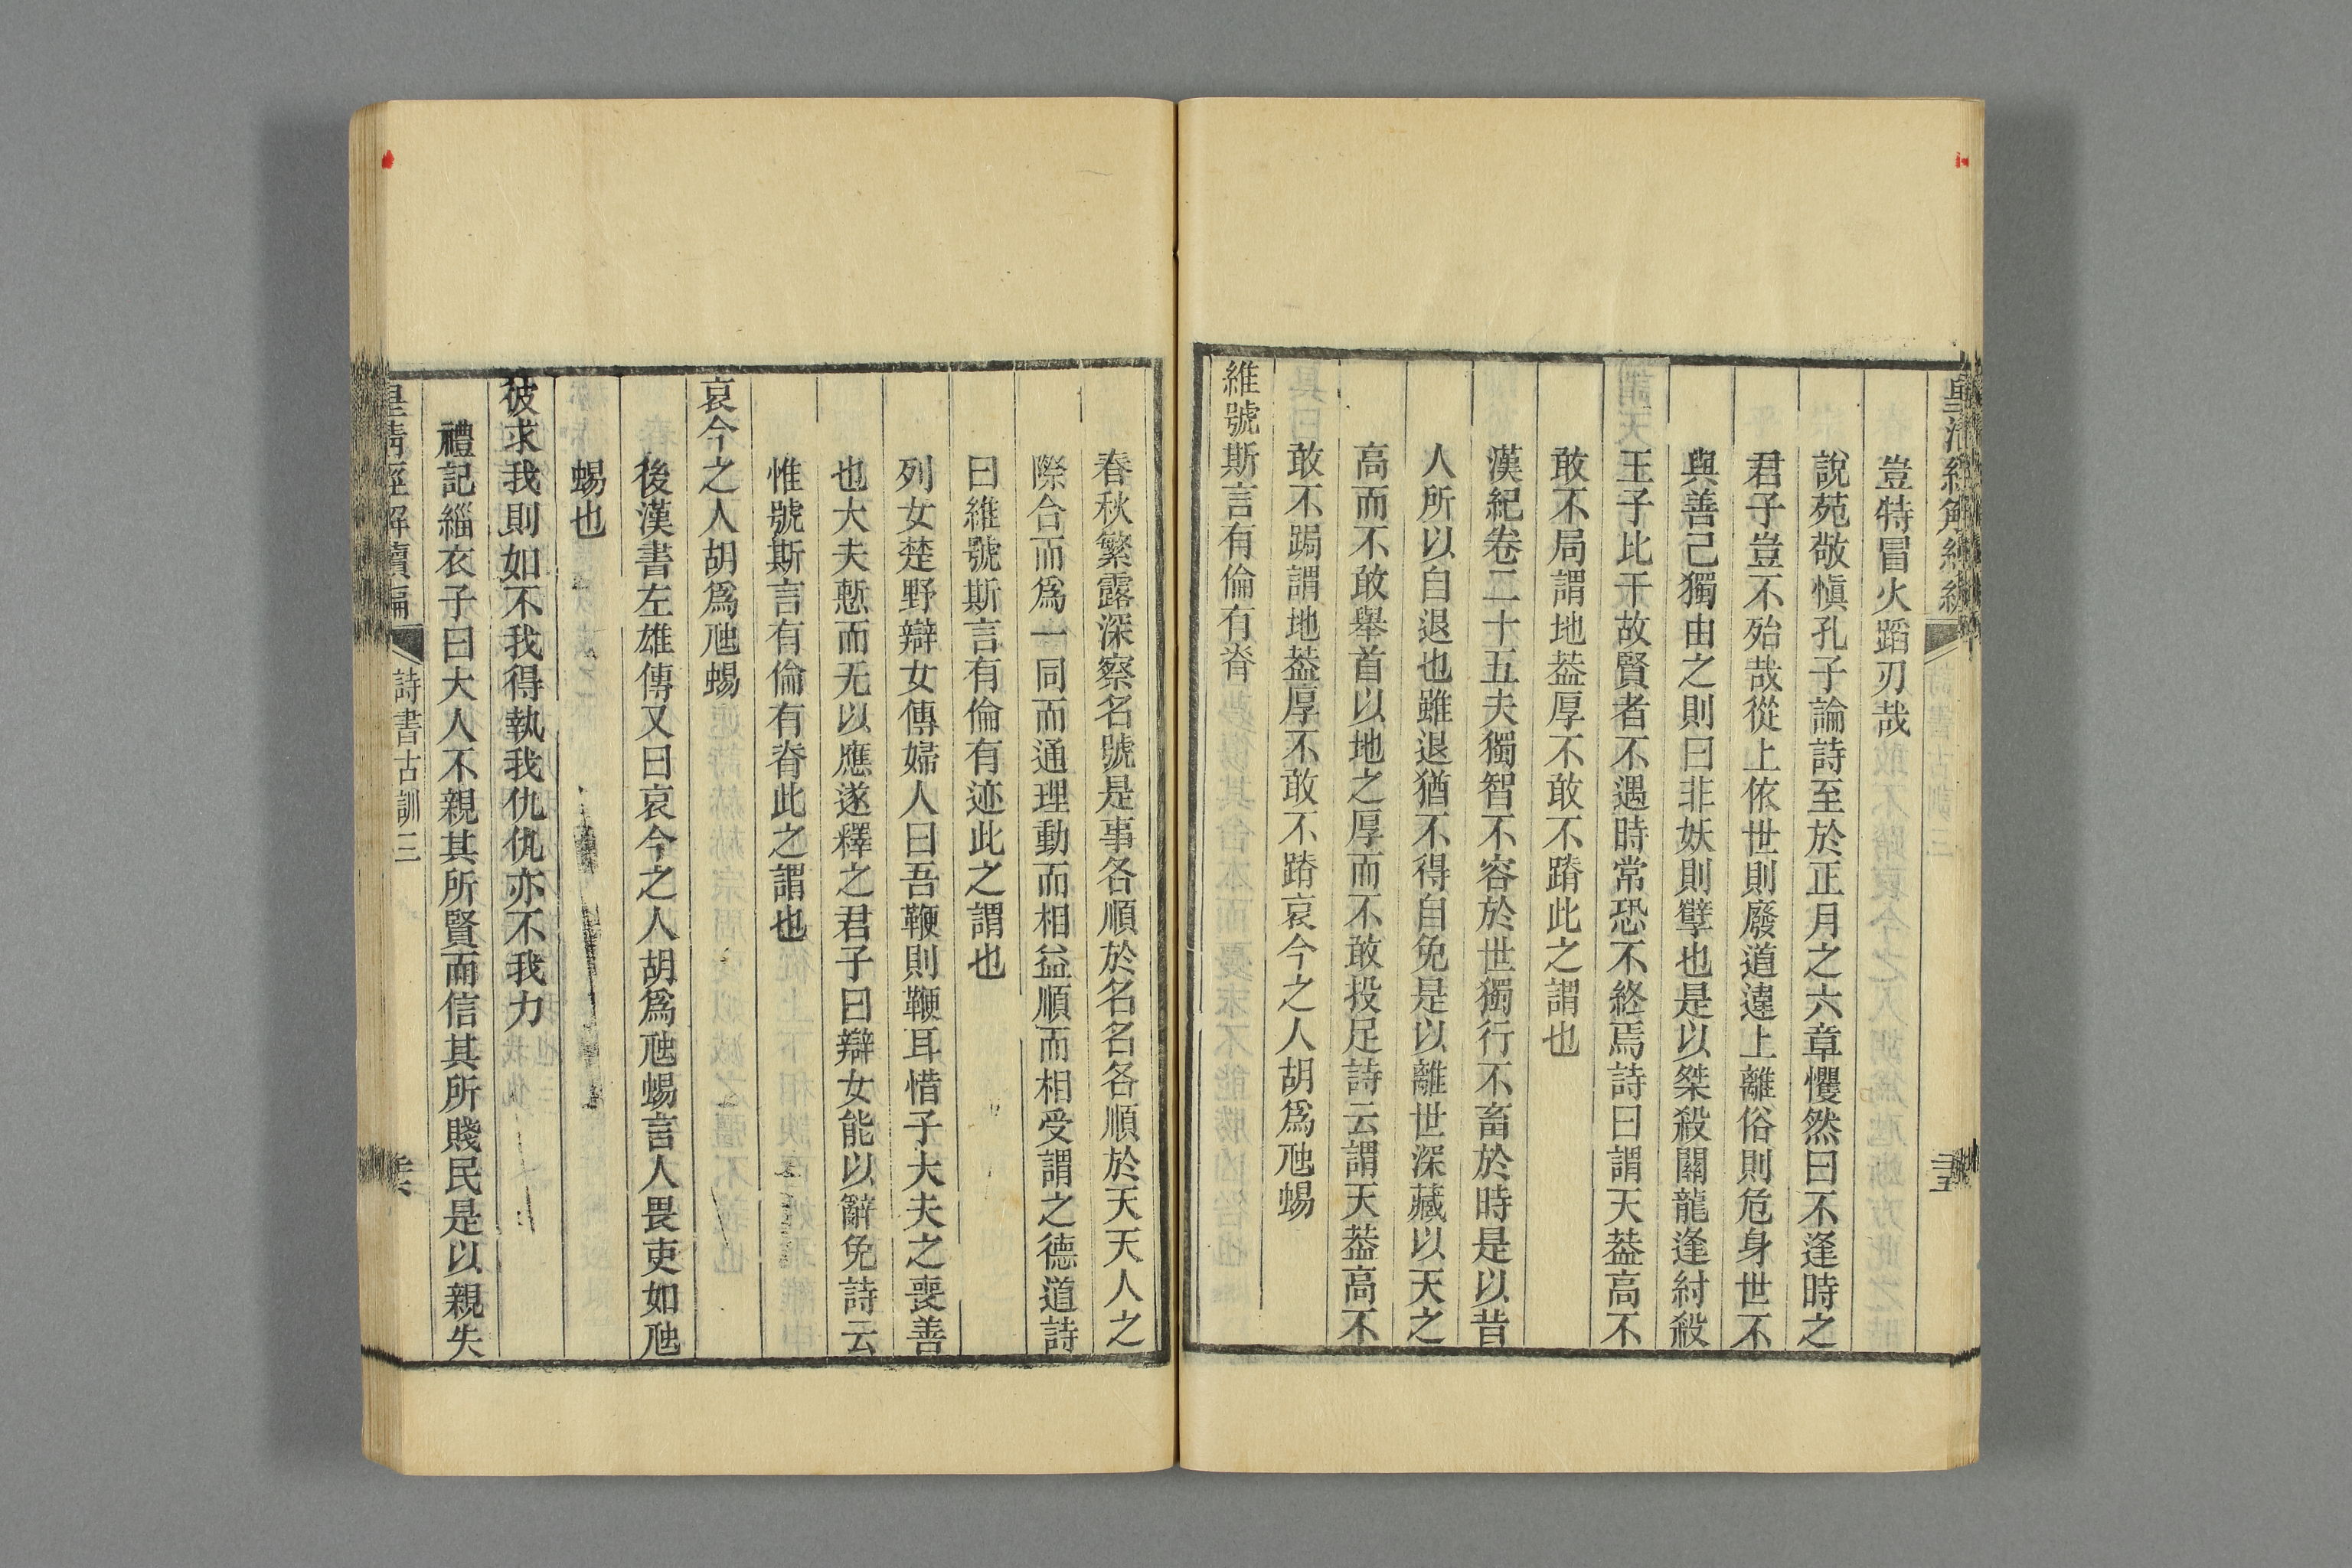 皇清經解續編
豈特冒火蹈刃哉
說苑敬愼孔子論詩至於正月之六章戄然曰不逢時之
君子豈不殆哉從上依世則廢道違上離俗則危身世不
與善己獨由之則曰非妖則孼也是以桀殺關龍逢紂殺
王子比干故賢者不遇時常恐不終焉詩曰謂天葢高不
敢不局謂地葢厚不敢不蹐此之謂也
漢紀卷二十五夫獨智不容於世獨行不畜於時是以昔
人所以自退也雖退猶不得自免是以離世深藏以天之
高而不敢舉首以地之厚而不敢投足詩云謂天葢高不
敢不跼謂地葢厚不敢不蹐哀今之人胡爲虺蜴
維號斯言有倫有脊
春秋繁露深察名號是事各順於名名各順於天天人之
際合而爲一同而通理動而相益順而相受謂之德道詩
曰維號斯言有倫有迹此之謂也
列女楚野辯女傳婦人曰吾鞭則鞭耳惜子大夫之喪善
也大夫慙而无以應遂釋之君子曰辯女能以辭免詩云
惟號斯言有倫有脊此之謂也
哀今之人胡爲虺蜴
後漢書左雄傳又曰哀今之人胡爲虺蜴言人畏吏如虺
蜴也
彼求我則如不我得執我仇仇亦不我力
禮記緇衣子曰大人不親其所賢而信其所賤民是以親失
皇清經解續編
詩書古訓三